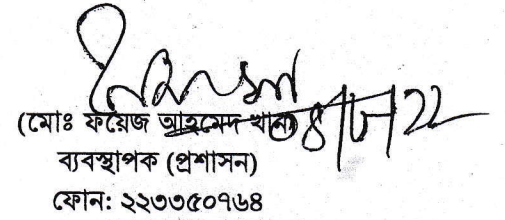 ০৪/৮/২২
(মোঃ ফয়েজ আহমেদ খান)
ব্যবস্থাপক (প্রশাসন)
ফোন: ২২৩৩৫০৭৬৪